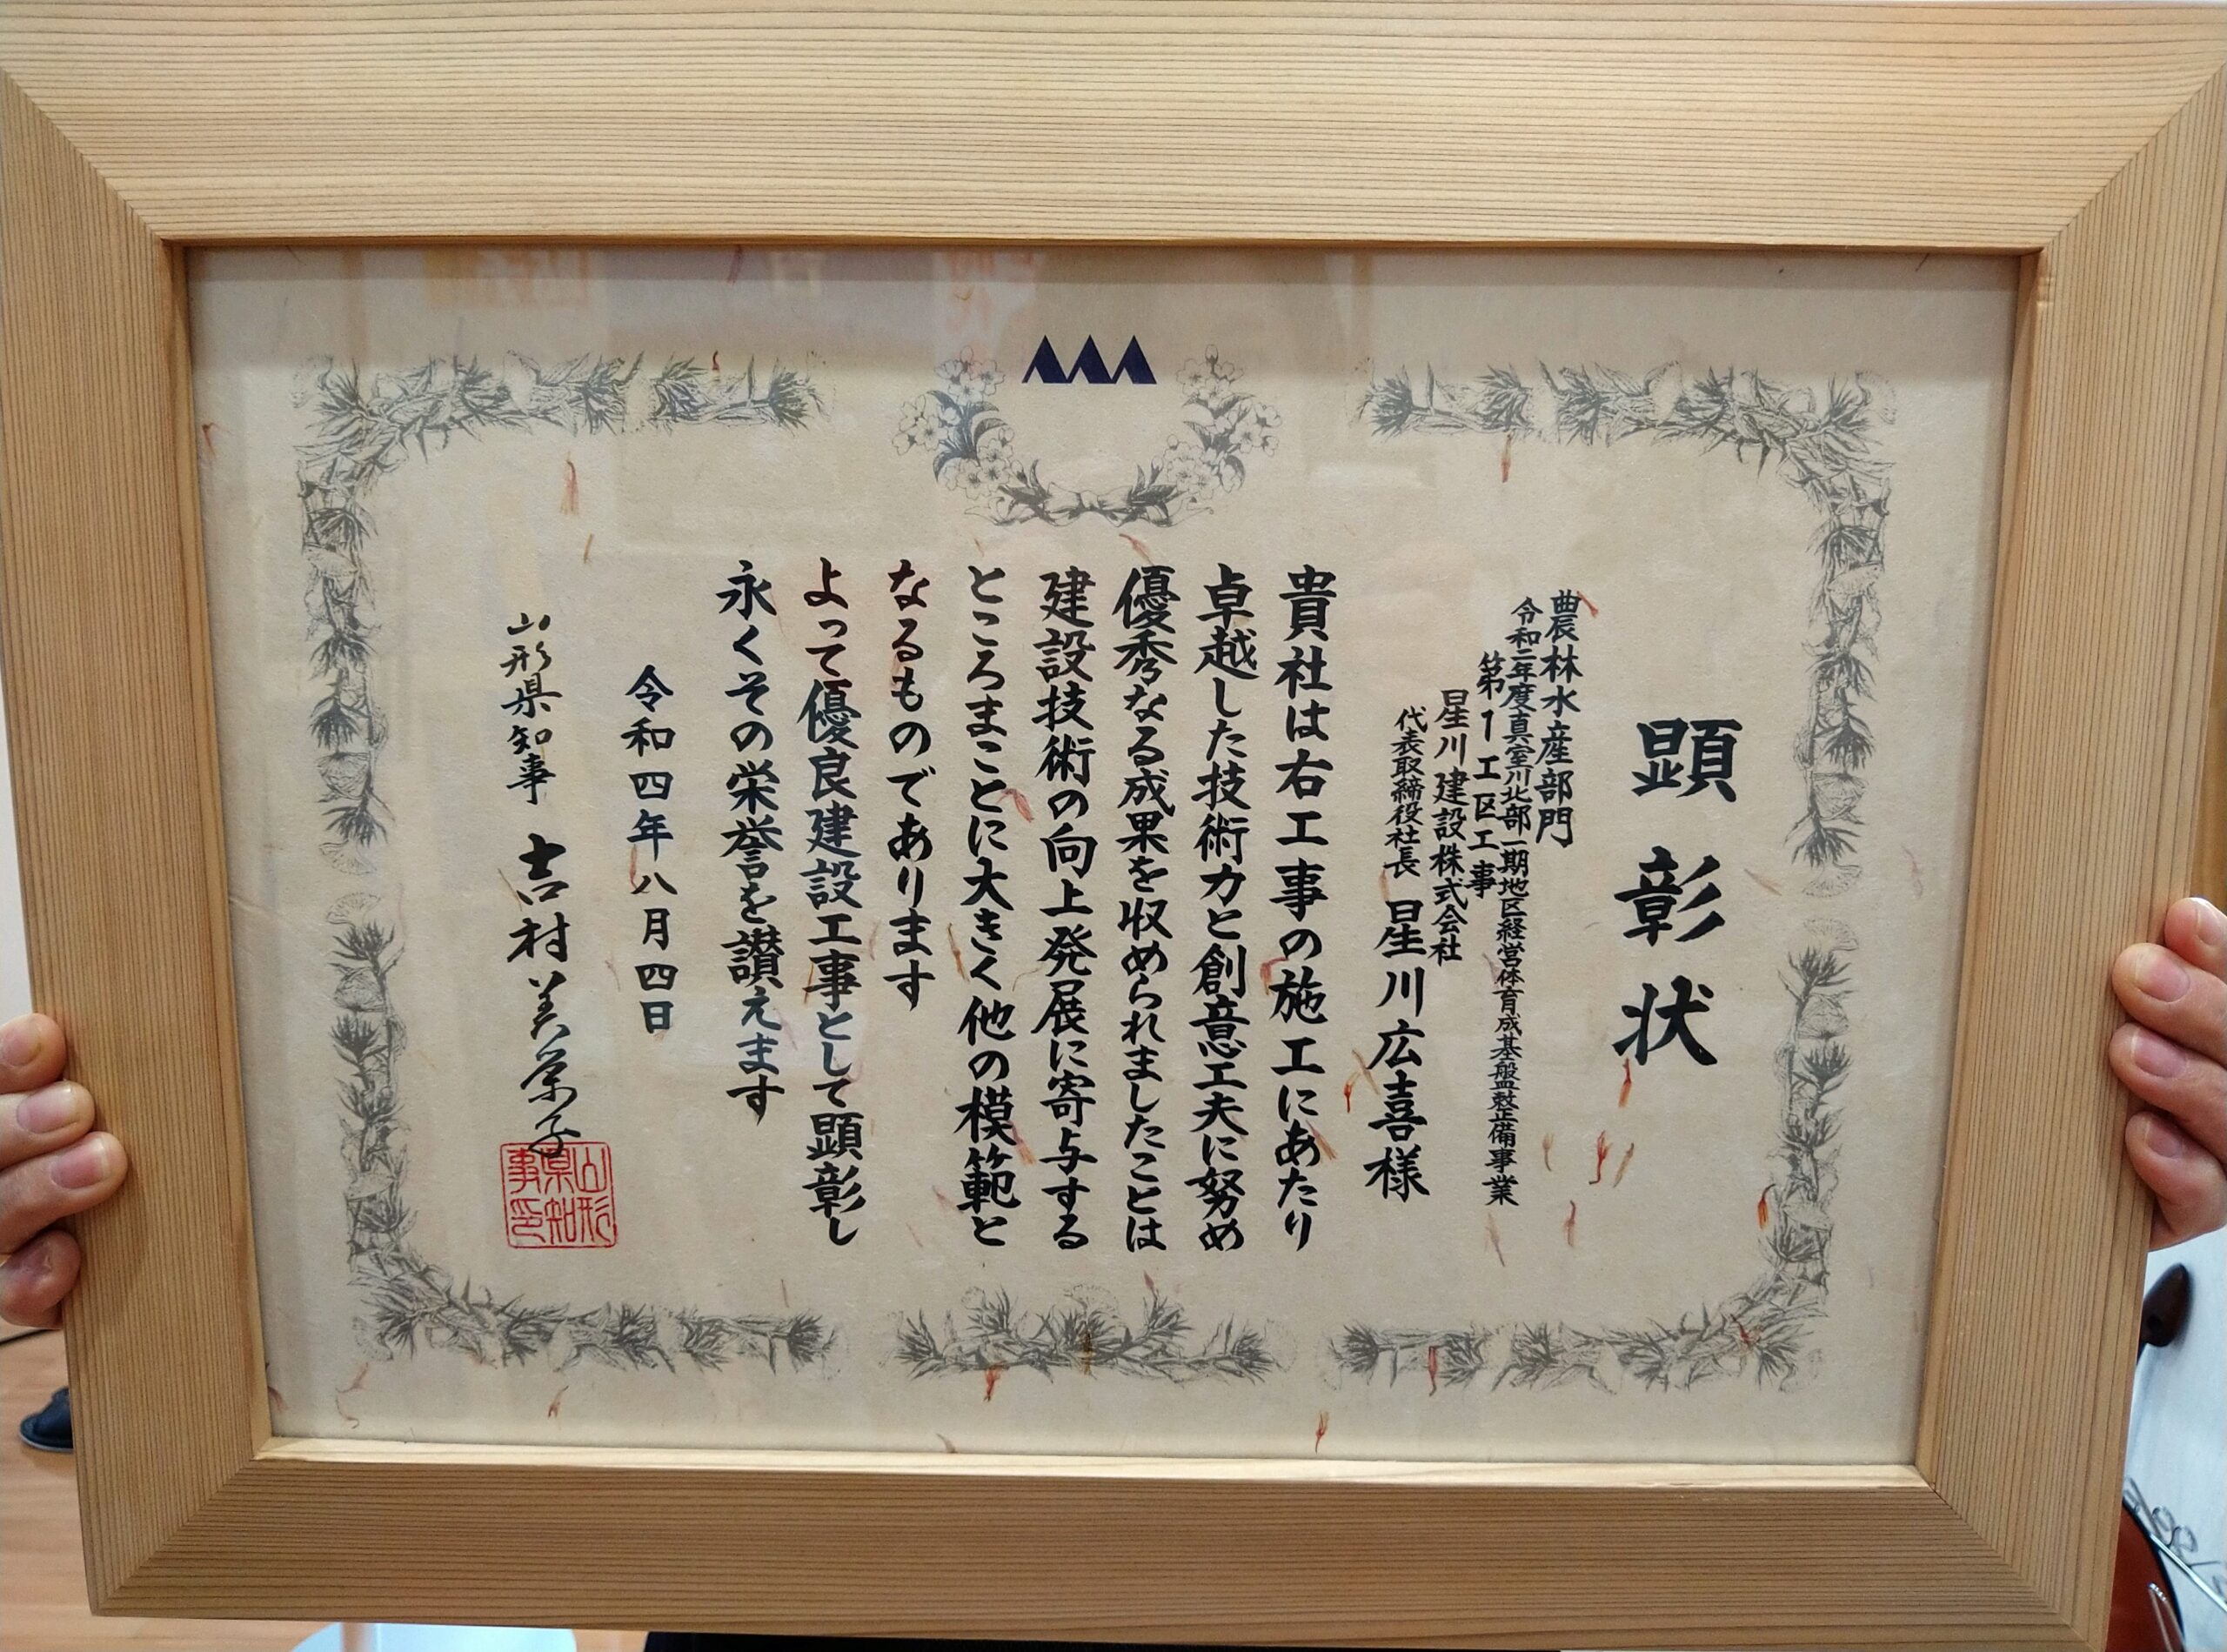 顕彰状
農林水産部門
令和二年度真室川北部一期地区経営体育成基盤整備事業
第1工区工事
星川建設株式会社
代表取締役社長 星川広喜様
貴社は右工事の施工にあたり
卓越した技術力と創意工夫に努め
優秀なる成果を収められましたことは
建設技術の向上発展に寄与する
ところまことに大きく他の模範と
なるものであります
よって優良建設工事として顕彰し
永くその栄誉を讃えます
令和四年八月四日
山形県知事 吉村美栄子
山形県知事印